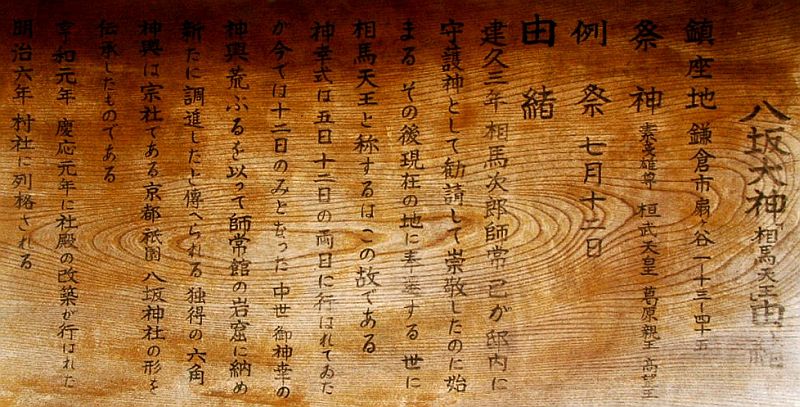 八坂大神 相馬天王 由緒
鎮座地 鎌倉市扇ヶ谷一十三ー四十五
祭神 素戔雄尊 桓武天皇 葛原親王 高望王
例祭 七月十二日
由緒
建久三年 相馬次郎師常 己が邸内に
守護神として勧請して崇敬したのに始
まる その後現在の地に奉遷する 世に
相馬天王と称するはこの故である
神幸式は五日十二日の両日に行はれてゐた
が今では十二日のみとなった 中世 御神幸の
神輿荒ぶるを以って師常館の岩窟に納め
新たに調進したと傳へられる 独得の六角
神輿は宗社である京都祇園 八坂神社の形を
伝承したものである
享和元年 慶応元年に社殿の改築が行はれた
明治六年 村社に列格される